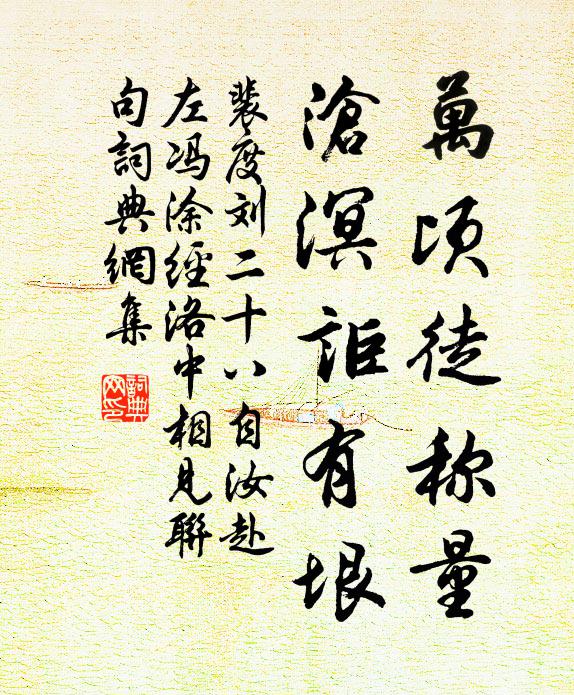 萬頃徒称量
滄溟詎有垠
裴度刘二十八自汝赴
左冯涂經洛中相見聯
句詞典網集
詞典网印